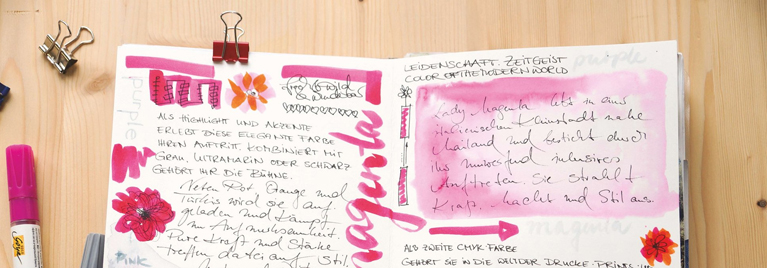 purple
ALS HIGHLIGHT UND AKZENTE
ERLEBT DIESE ELEGANTE FARBE
IHREN AUFTRITT. KOMBINIERT MIT
GRAU, ULTRAMARIN ODER SCHWARZ
GEHÖRT IHR DIE BÜHNE.
Neben Rot, Orange und
Türkis wird sie auf
geladen und kämpft
um Aufmerksamkeit.
Pure Kraft und Stärke
treffen dabei auf Stil.
PINK
magenta
LEIDENSCHAFT. ZEITGEIST
COLOR OF THE MODERN WORLD
purple
Lady Magenta lebt in einer
italienischen Kleinstadt nahe
Mailand und besticht durch
ihr
Auftreten. Sie strahlt
Kraft, Macht und Stil aus.
magenta
ALS ZWEITE CMYK FARBE
GEHÖRT SIE IN DIE WELT DER DRUCKE. PRINTS